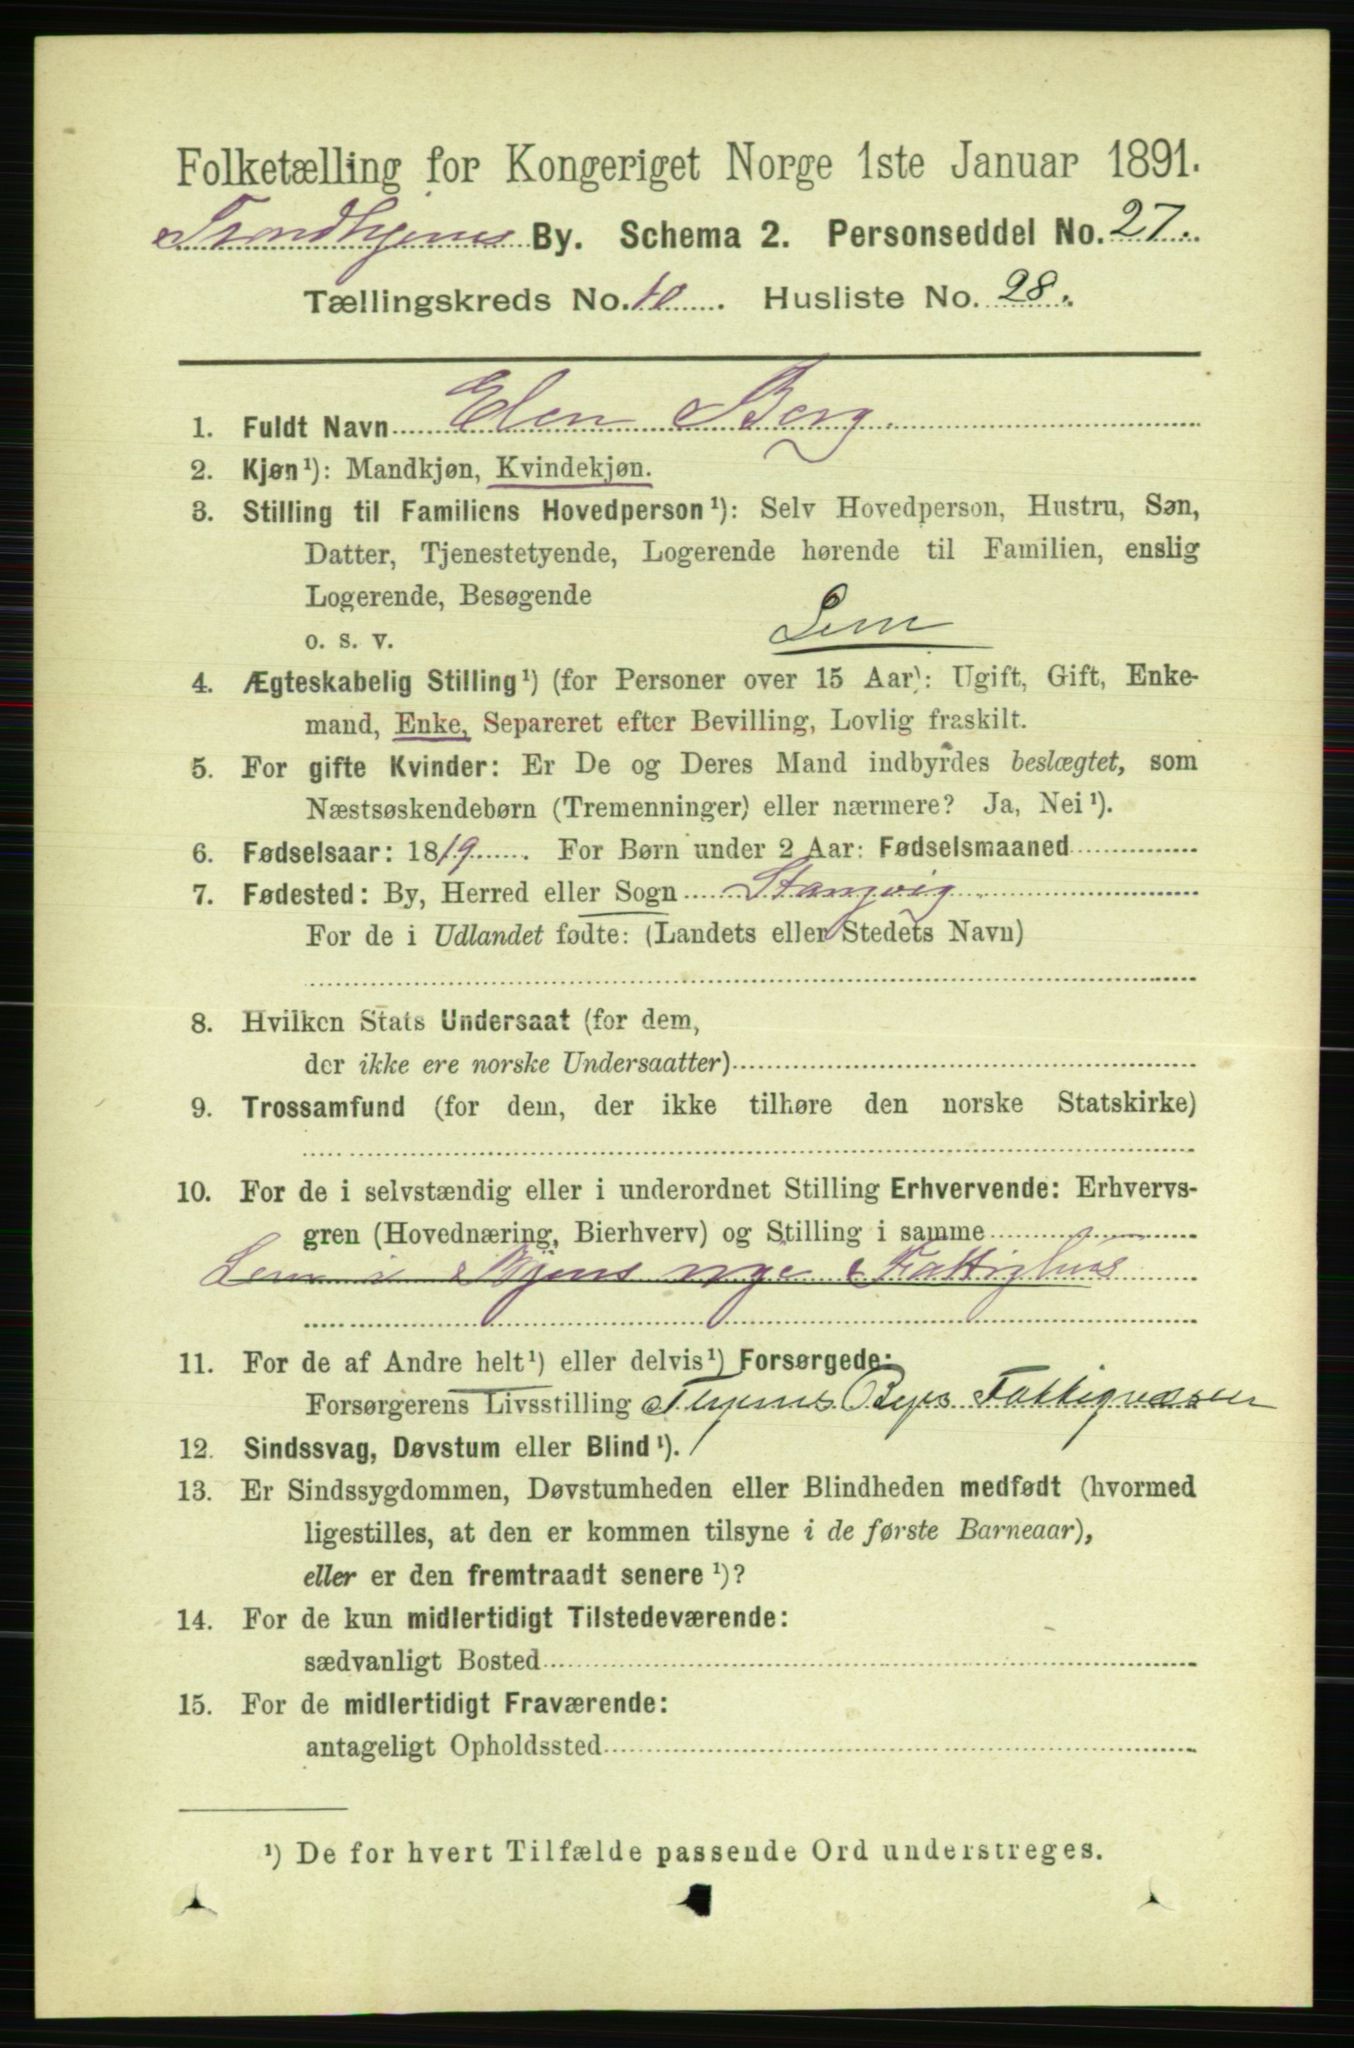 Folketælling for Kongeriget Norge 1ste Januar 1891.
Trondhjems By. Schema 2. Personseddel No. 27.
Tællingskreds No. 10. Husliste No. 28.
1. Fuldt Navn Elen Berg.
2. Kjøn¹): Mandkjøn, Kvindekjøn.
3. Stilling til Familiens Hovedperson¹): Selv Hovedperson, Hustru, Søn,
Datter, Tjenestetyende, Logerende hørende til Familien, enslig
Logerende, Besøgende
o. s. v. Lem
4. Ægteskabelig Stilling¹) (for Personer over 15 Aar): Ugift, Gift, Enke-
mand, Enke, Separeret efter Bevilling, Lovlig fraskilt.
5. For gifte Kvinder: Er De og Deres Mand indbyrdes beslægtet, som
Næstsøskendebørn (Tremenninger) eller nærmere? Ja, Nei¹).
6. Fødselsaar: 1819. For Børn under 2 Aar: Fødselsmaaned
7. Fødested: By, Herred eller Sogn Stangvig
For de i Udlandet fødte: (Landets eller Stedets Navn)
8. Hvilken Stats Undersaat (for dem,
der ikke ere norske Undersaatter)
9. Trossamfund (for dem, der ikke tilhøre den norske Statskirke)
10. For de i selvstændig eller i underordnet Stilling Erhvervende: Erhvervs-
gren (Hovednæring, Bierhverv) og Stilling i samme
Lem i Byens nye Fattighus
11. For de af Andre helt¹) eller delvis¹) Forsørgede:
Forsørgerens Livsstilling Thjems Byes Fattigvæsen
12. Sindssvag, Døvstum eller Blind¹).
13. Er Sindssygdommen, Døvstumheden eller Blindheden medfødt (hvormed
ligestilles, at den er kommen tilsyne i de første Barneaar),
eller er den fremtraadt senere¹)?
14. For de kun midlertidigt Tilstedeværende:
sædvanligt Bosted
15. For de midlertidigt Fraværende:
antageligt Opholdssted
¹) De for hvert Tilfælde passende Ord understreges.